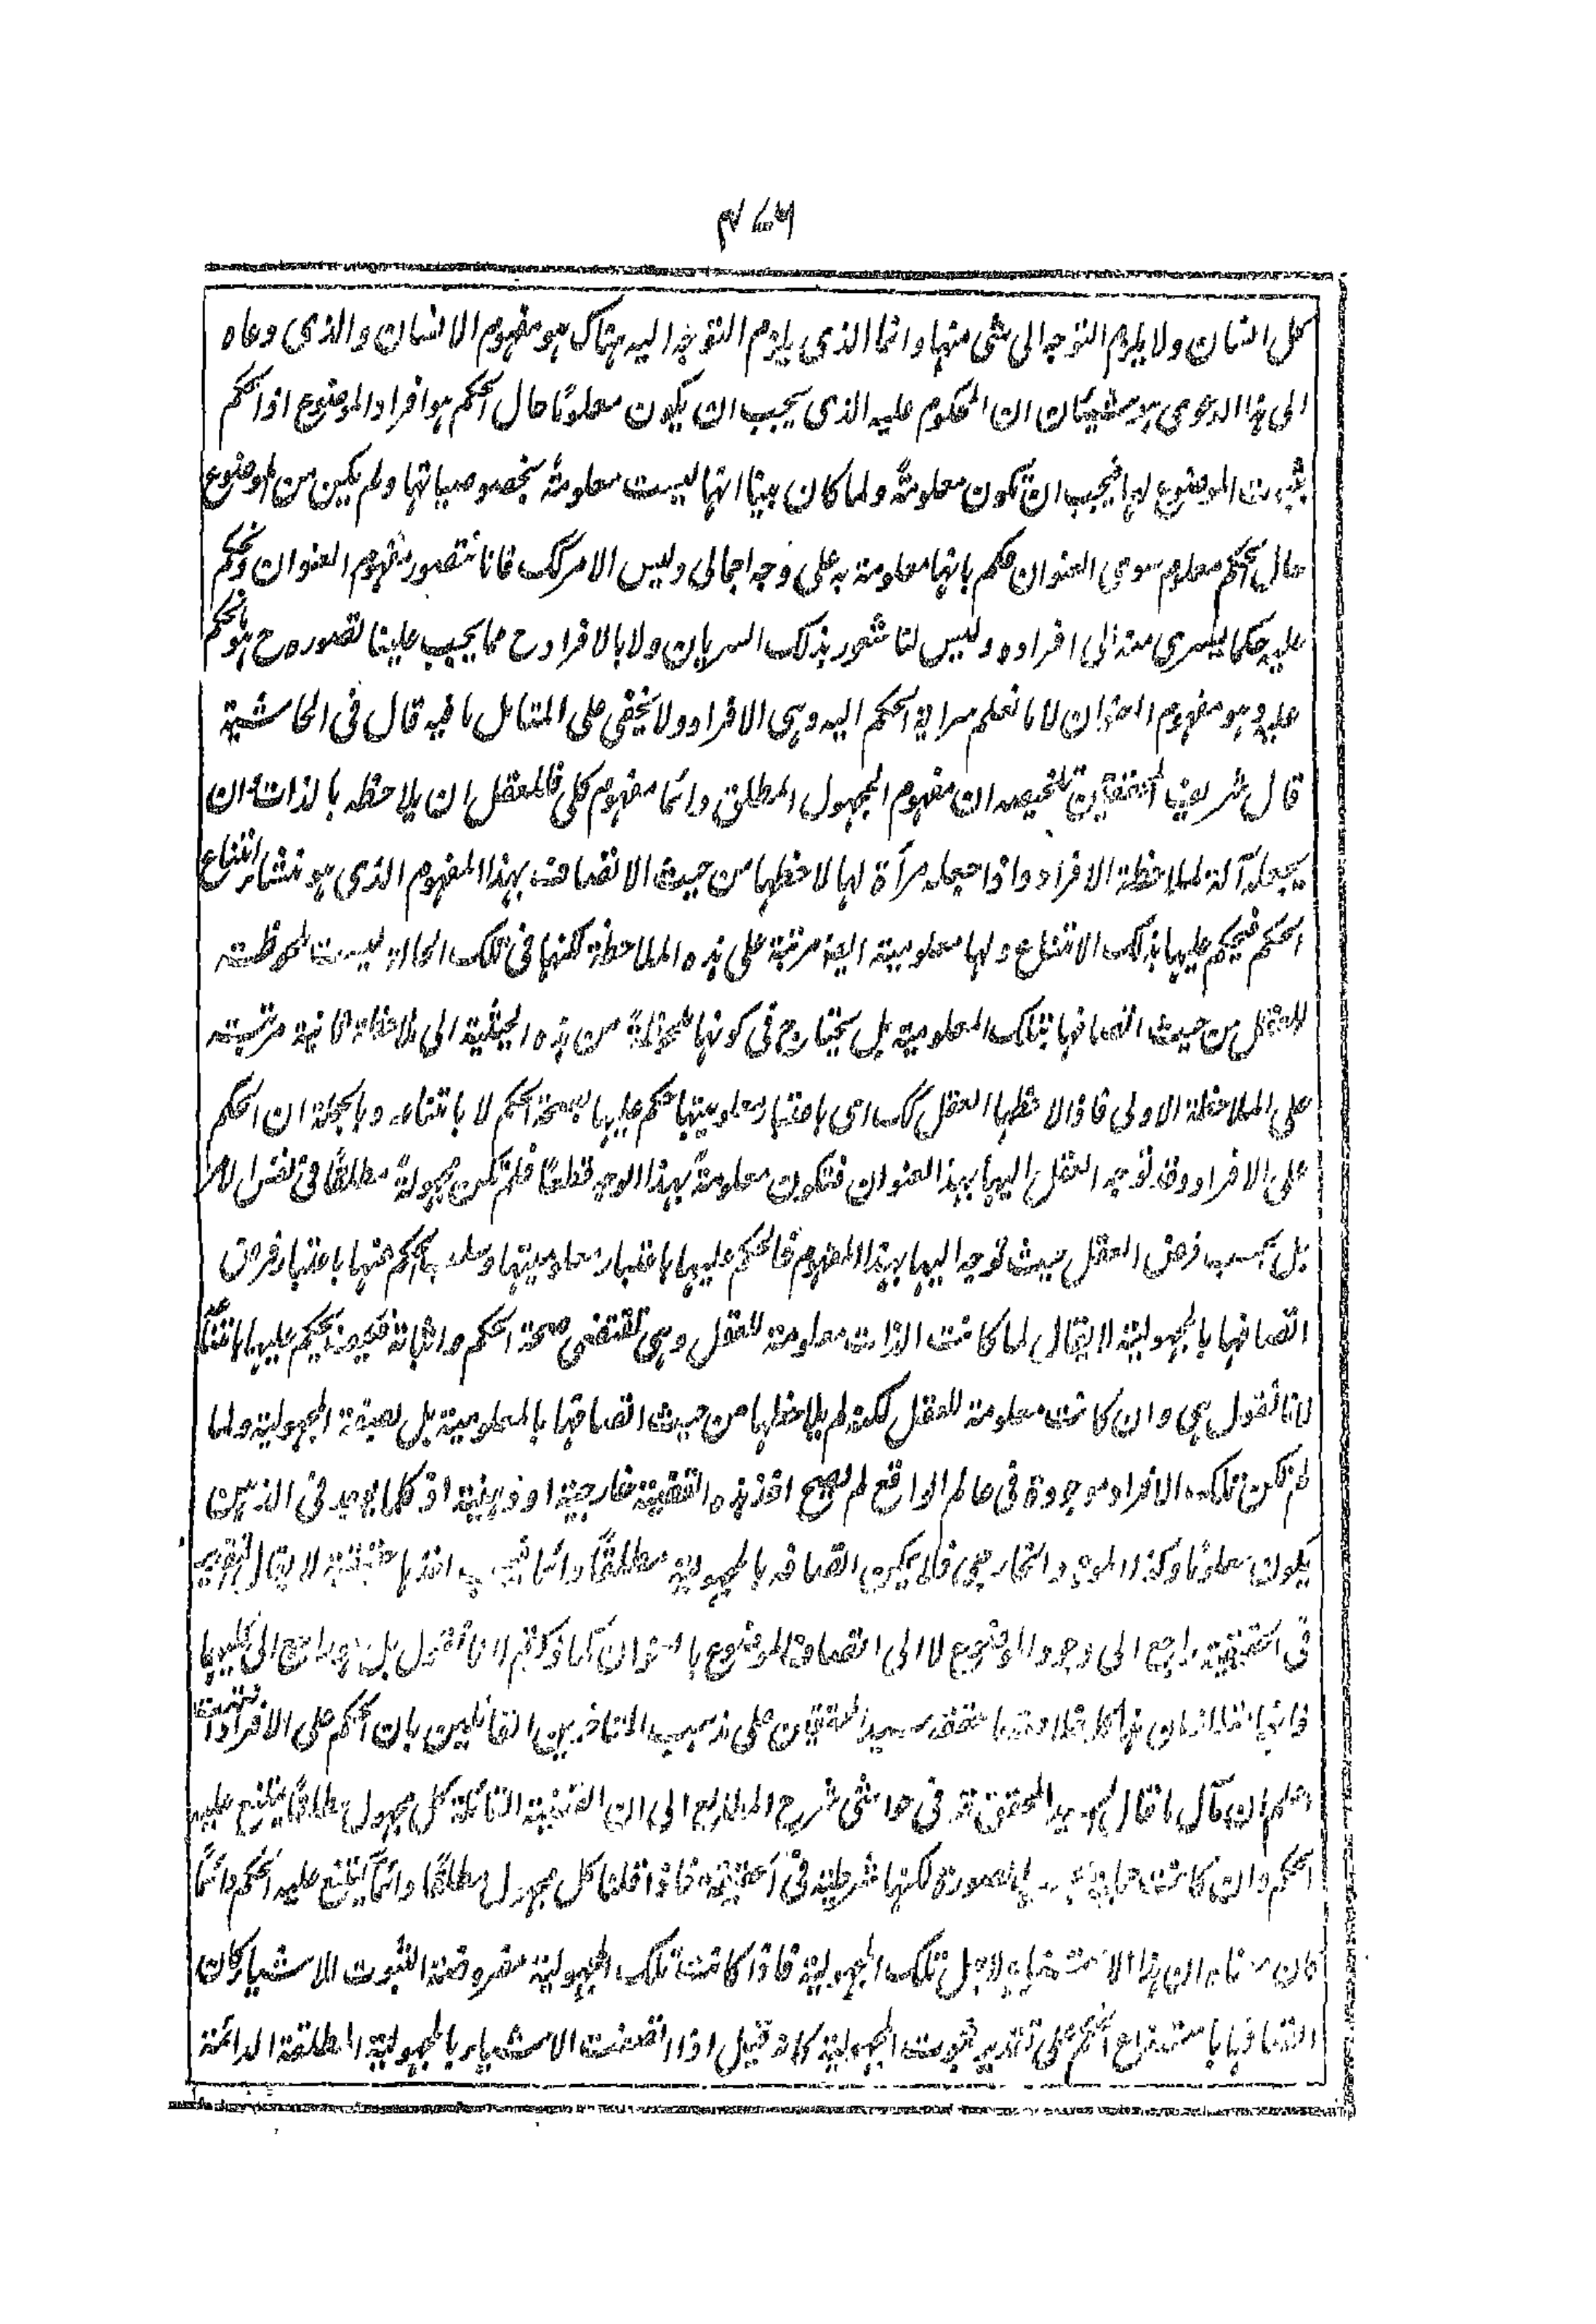 كل انسان ولا يلزم التوجه الى شى منها وانما الذى يلزم التوجه اليه هناك هو مفهوم الانسان والذى دعاه
الى هذا الدعوى هو شيئان ان المحكوم عليه الذى يجب ان يكون معلوما حال الحكم هو افراد الموضوع اذ الحكم
بثبوت الموضوع لها فيجب ان تكون معلومة ولما كان بينا انها ليست معلومة بخصوصياتها ولم يكن من الموضوع
حال الحكم معلوم سوى العنوان حكم بانها معلومة به على وجه اجمالى وليس الامر كك فانا نتصور مفهوم العنوان ونحكم
عليه حكما يسرى منه الى افراده وليس لنا شعور بذلك السريان ولا بالافراد ح مما يجب علينا تصوره ح هو المحكوم
عليه وهو مفهوم العنوان لا ما نعلم سراية الحكم اليه وهى الافراد ولا يخفى على المتامل ما فيه قال فى الحاشية
قال شريف المحققين تلخيصه ان مفهوم المجهول المطلق دائما مفهوم كلى فللعقل ان يلاحظه بالذات وان
يجعله آلة لملاحظة الافراد واذا جعله مرآة لها لاحظها من حيث الاتصاف بهذا المفهوم الذى هو منشار امتناع
الحكم فيحكم عليها بذلك الامتناع ولها معلومية ايضا مرتبة على هذه الملاحظة لكنها فى تلك الحالة ليست ملحوظة
للعقل من حيث اتصافها بتلك المعلومية بل يحتاج فى كونها ملحوظة من هذه الحيثية الى ملاحظة ثانية مرتبة
على الملاحظة الاولى فاذا لاحظها العقل كك اى باعتبار معلوميتها حكم عليها بصحة الحكم لا بامتناعه وبالجملة ان الحكم
على الافراد وقد توجه العقل اليها بهذا العنوان فتكون معلومة بهذا الوجه قطعا فلم تكن مجهولة مطلقا فى نفس الامر
بل بحسب فرض العقل حيث توجه اليها بهذا المفهوم فالحكم عليها باعتبار معلوميتها وسلب الحكم عنها باعتبار فرض
اتصافها بالمجهولية لا يقال لما كانت الذات معلومة للعقل وهى تقتضى صحة الحكم واثباته فكيف يحكم عليها بامتناعه
لانا نقول هى وان كانت معلومة للعقل لكنه لم يلاحظها من حيث اتصافها بالمعلومية بل بصفة المجهولية ولما
لم تكن تلك الافراد موجودة فى عالم الواقع لم يصح اخذ هذه القضية خارجية او ذهنية اذ كلما يوجد فى الذهن
يكون معلوما وكذا الموجود الخارجى فلا يمكن اتصافه بالمجهولية مطلقا دائما فيجب اخذها حقيقية لا يقال التقدير
فى الحقيقية راجع الى وجود الموضوع لا الى اتصاف الموضوع بالعنوان كما ذكرتم لانا نقول بل هو راجع الى كليهما
فانها هذا خلاصة ما حققه سيد المحققين على مذهب المتاخرين القائلين بان الحكم على الافراد انتهت
اعلم ان مآل ما قال السيد المحقق قد فى حواشى شرح المطالع الى ان القضية القائلة كل مجهول مطلقا يمتنع عليه
الحكم وان كانت حملية بحسب الصورة لكنها شرطية فى الحقيقة فاذا قلنا كل مجهول مطلقا دائما يمتنع عليه الحكم دائما
كان معناه ان هذا الامتناع لاجل تلك المجهولية فاذا كانت تلك المجهولية مفروضة الثبوت للاشيار كان
اتصافها بامتناع الحكم على تقدير ثبوت المجهولية كانه قيل اذا اتصفت الاشيار بالمجهولية المطلقة الدائمة